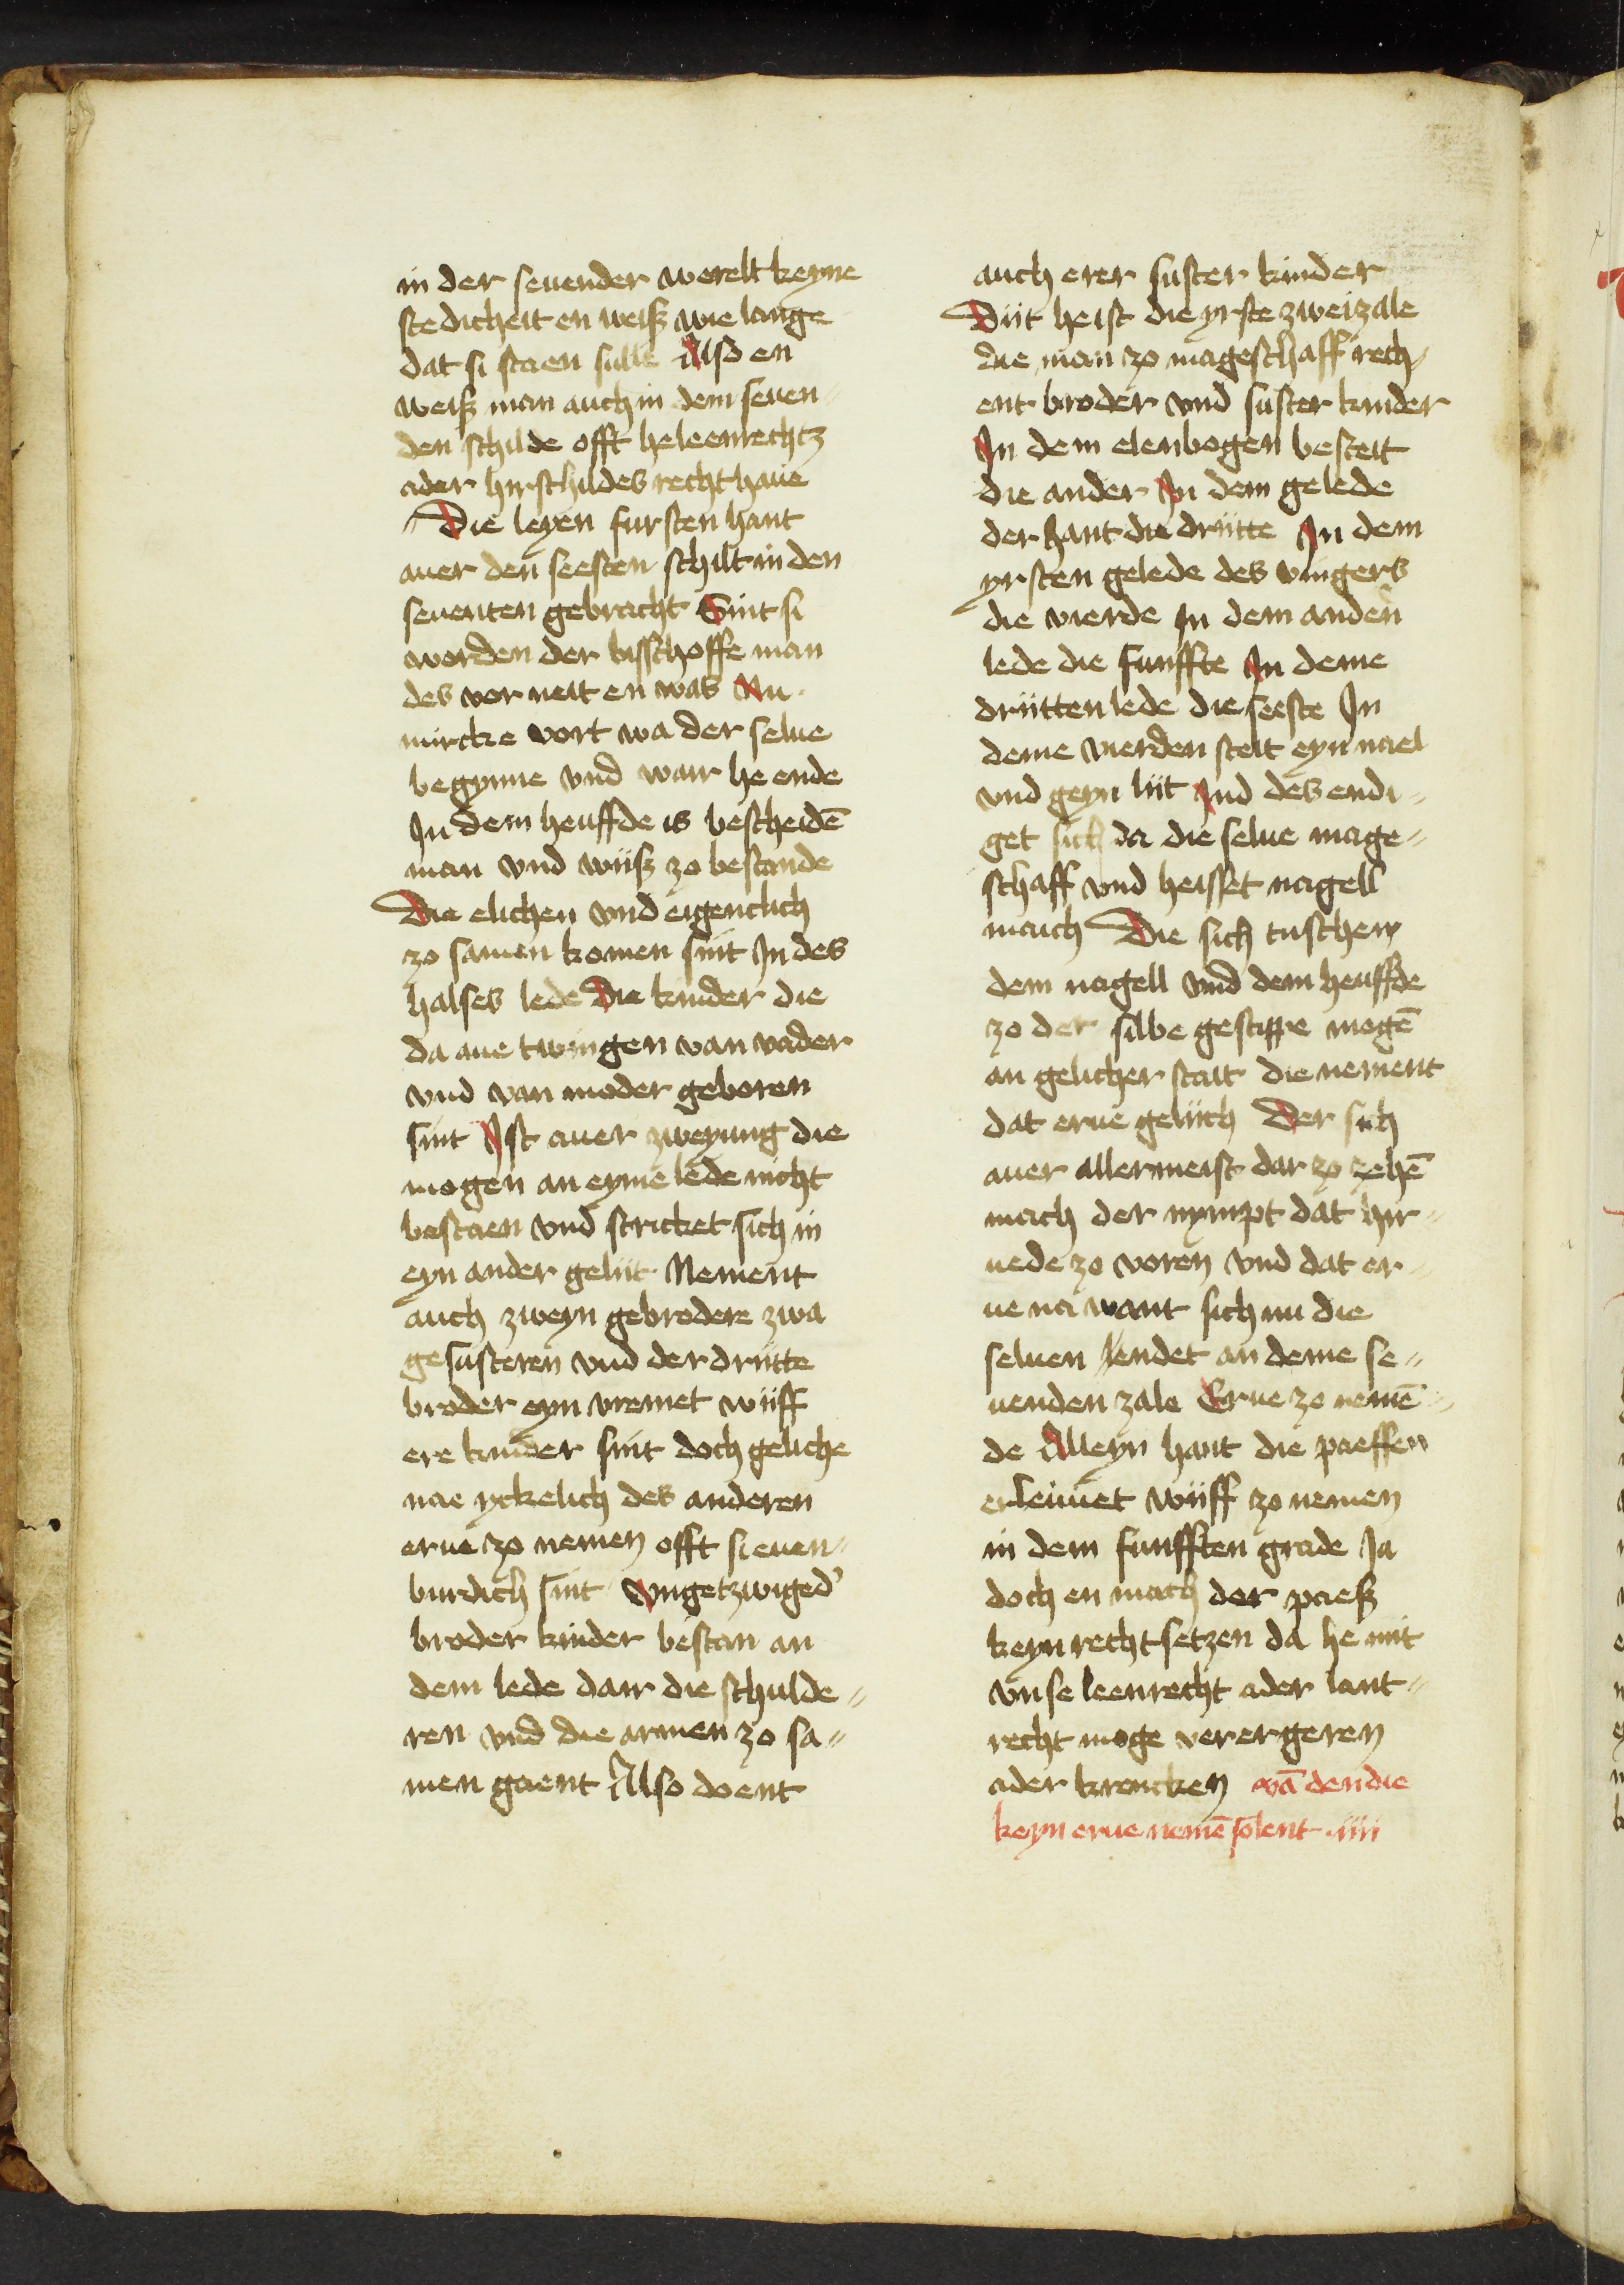 in der seuender werelt keyne
stedicheit en weiß wie lange
dat si staen sulle Also en
weiß man auch in dem seuen-
den schilde offt he leenrechtz
ader hirschildes recht haue
Die leyen fursten hant
auer den seesten schilt in den
seuenten gebracht Sint si
worden der bisschoffe man
des vor neit en was Nu
mircke vort wa der selue
begynne vnd wair he ende
In dem heuffde is bescheidē
man vnd wiiß zo bestande
Die elichen vnd eigentlich
zo samen komen sint In des
halses lede Die kinder die
da aue twingen van vader
vnd van moder geboren
sint Ist auer zweyung die
mogen an eyme lede nicht
bestaen vnd stricket sich in
eyn ander geliit Nement
auch zweyn gebrodere zwa
gesusteren vnd der driitte
broder eyn vremet wiiff
ere kinder sint doch geliche
nae yckelich des anderen
erue zo nemen offt si euen-
burdich sint Vngetzwiged'
broder kinder bestan an
dem lede dair die schulde-
ren vnd die armen zo sa-
men gaent Also doent
auch erer suster kinder
Diit heist die yrste zweizale
die man zo mageschaff rech-
ent broder vnd suster kinder
In dem elenbogen besteit
die ander In dem gelede
der hant die driitte In dem
yrsten gelede des vingers
die vierde In dem anden
lede die funffte In deme
driitten lede die seeste In
deme vierden steit eyn nael
vnd geyn liit Ind des endi-
get sich da die selue mage-
schaff vnd heisset nagell
maich Die sich tuschen
dem nagell vnd dem heuffde
zo der silbe gestippe mogē
an gelicher stat die nement
dat erue geliich Der sich
auer allermeist dar zo zehē
mach der nympt dat hir-
uede zo voren vnd dat er-
ue na want sich nu die
seluen lendet an deme se-
uenden zale Erue zo nemē-
de Alleyn hant die paeffen
erleuuet wiiff zo nemen
in dem funfften grade Ja
doch en mach der paeß
keyn recht setzen da he mit
vnse leenrecht ader lant-
recht moge verergeren
ader krencken vā den die
keyn erue nemē solent iiii